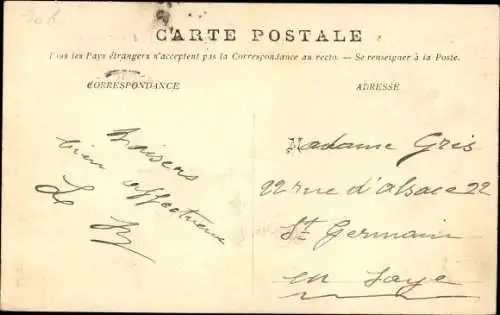 CARTE POSTALE
Tous les Pays étrangers n'acceptent pas la Correspondance au recto. — Se renseigner à la Poste.
CORRESPONDANCE
ADRESSE
baisers
bien affectueux
Madame Gris
22 rue d'alsace 22
St Germain
en Laye